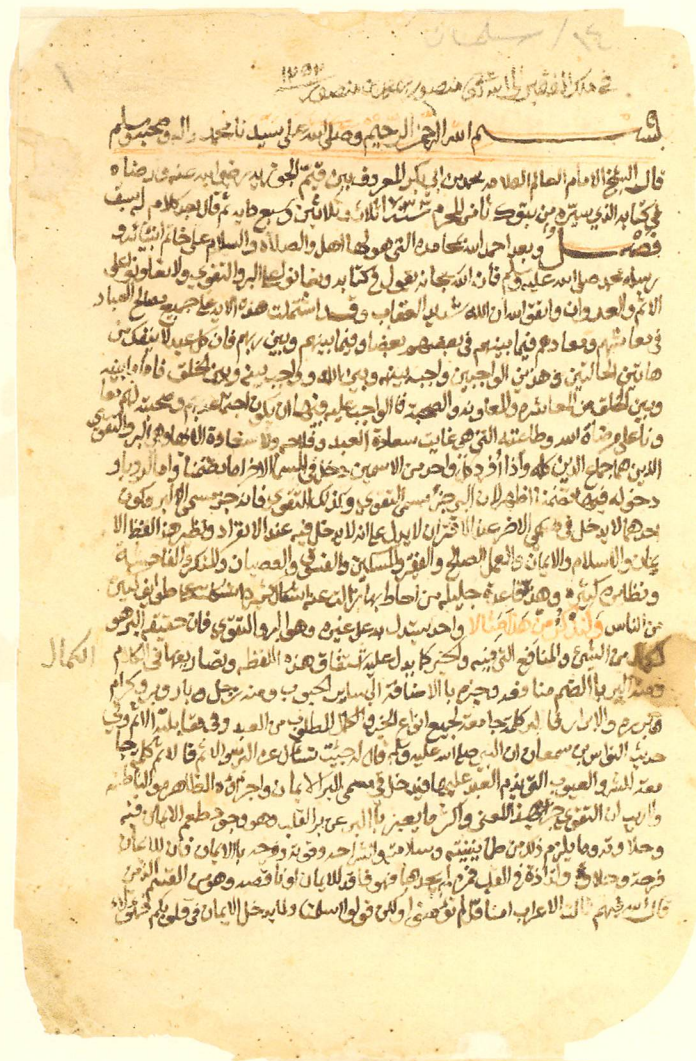 ١٤ / سلمان
١
في ملك الفقير الى الله تعالى منصور بن منصور
١٢٥٢
بسم الله الرحمن الرحيم وصلى الله على سيدنا محمد واله وصحبه وسلم
قال الشيخ الامام العالم العلامه محمد بن ابي بكر المعروف بابن قيم الجوزيه رضي الله عنه وارضاه
في كتابه الذي سيره من تبوك ثامن المحرم سنة ثلاث وثلاثين وسبع مايه ثم قال بعد كلام له سبق
فصل وبعد احمد الله بمحامده التي هو لها اهل والصلاة والسلام على خاتم انبيائه و
رسله محمد صلى الله عليه وسلم فان الله سبحانه يقول في كتابه وتعاونوا على البر والتقوى ولا تعاونوا على
الاثم والعدوان واتقوا الله ان الله شديد العقاب وقد اشتملت هذه الاية على جميع مصالح العباد
في معاشهم ومعادهم فيما بينهم في بعضهم بعضا وفيما بينهم وبين ربهم فان كل عبد لا ينفك من
هاتين الحالتين وهذين الواجبين واجب بينه وبين الله وواجب بينه وبين الخلق فاما ما بينه
وبين الخلق من المعاشره والمعاونه والصحبة فالواجب عليه فيها ان يكون اجتماعه بهم وصحبته لهم تعا
ونا على مرضاة الله وطاعته التي هي غايت سعادة العبد وفلاحه ولا سعادة له الا بها وهي البر والتقوى
الذين هما جماع الدين كله واذا افرد كل واحد من الاسمين دخل في المسمى الاخر اما تضمنا واما لزوما و
دخوله فيه تضمنا اظهر لان البر جزء مسمى التقوى وكذلك التقوى فانه جزء مسمى البر وكون
احدهما لا يدخل في مسمى الاخر عند الاقتران لا يدل على انه لا يدخل فيه عند الانفراد ونظير هذا لفظ الا
يمان والاسلام والايمان والعمل الصالح والفقير والمسكين والفسق والعصيان والمنكر والفاحشة
ونظايره كثيره وهذه قاعدة جليله من احاط بها زالت عنه اشكالات كثيرة على طوائف كثيرة
من الناس ولنذكر من هذا مثالا واحد يستدل به على غيره وهو البر والتقوى فان حقيقة البر هو
الكمال من الشيء والمنافع التي فيه والخير كما يدل عليه اشتقاق هذه اللفظه وتصاريفها في الكلام
الكمال
ومنه البر بالضم لمنافعه وخيره بالاضافة الى ساير الحبوب ومنه رجل بار وبر وكرام
برره والابرار فالبر كلمة جامعة لجميع انواع الخير والكمال المطلوب من العبد وفي مقابلته الاثم وفي
حديث النواس بن سمعان ان النبي صلى الله عليه وسلم قال له جيت تسأل عن البر والاثم فالاثم كلمة جا
معة للشر والعيوب التي يذم العبد عليها فيدخل في مسمى البر الايمان واجزاؤه الظاهره والباطنه
ولا ريب ان التقوى جزء هذا المعنى واكثر ما يعبر بالبر عن بر القلب وهو وجود طعم الايمان فيه
وحلاوته وما يلزم ذلك من طمانينته وسلامته وانشراحه وقوته وفرحه بالايمان فان للايمان
فرحة وحلاوة ولذاذة في القلب فمن لم يجدها فهو فاقد للايمان او ناقصه وهو من القسم الذين
قال الله فيهم قالت الاعراب امنا قل لم تؤمنوا ولكن قولوا اسلمنا ولما يدخل الايمان في قلوبكم فهؤلاء